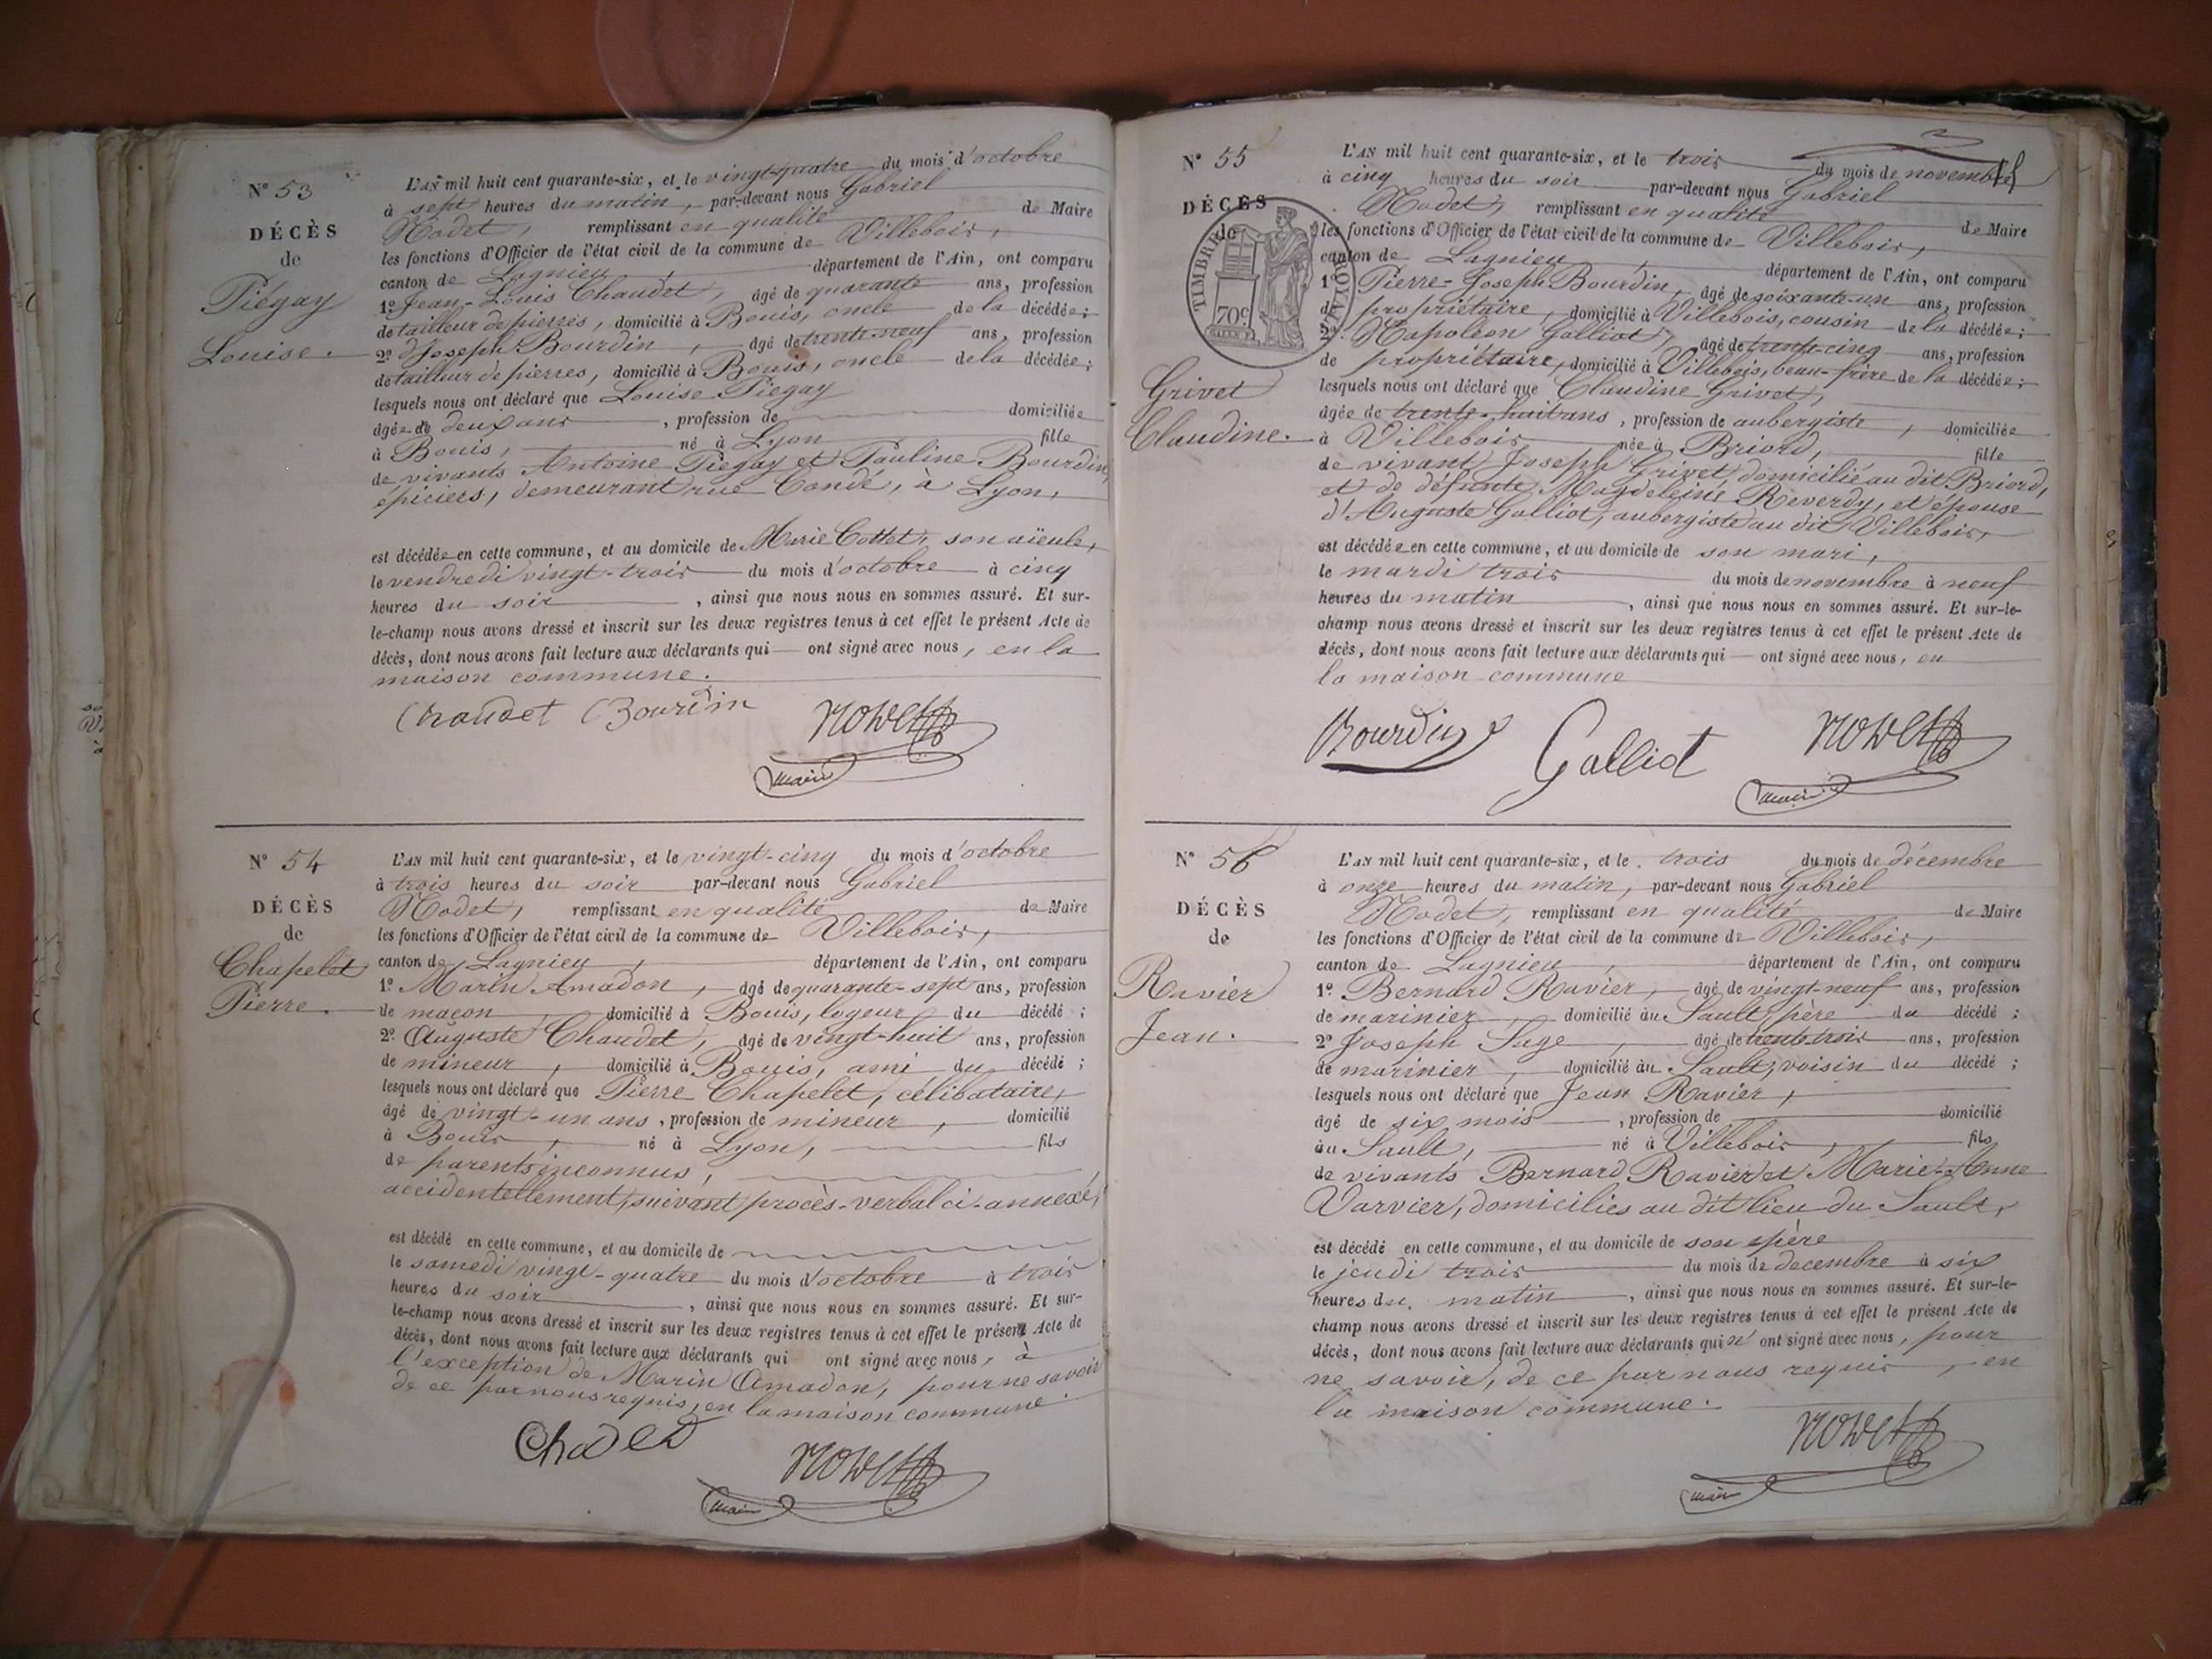 N° 53
DÉCÈS
de
Piégay
Louise.
L'AN mil huit cent quarante-six, et le vingt-quatre du mois d'octobre
à sept heures du matin, par-devant nous Gabriel
Nodet, remplissant en qualité de Maire
les fonctions d'Officier de l'état civil de la commune de Villebois,
canton de Lagnieu, département de l'Ain, ont comparu
1° Jean-Louis Chaudet, âgé de quarante ans, profession
de tailleur de pierres, domicilié à Bouis, oncle de la décédée;
2° Joseph Bourdin, âgé de trente-neuf ans, profession
de tailleur de pierres, domicilié à Bouis, oncle de la décédée;
lesquels nous ont déclaré que Louise Piegay
âgée de deux ans, profession de domiciliée
à Bouis, né à Lyon fille
de vivants Antoine Piegay et Pauline Bourdin,
épiciers, demeurant rue Condé, à Lyon,
est décédée en cette commune, et au domicile de Marie Cottet, son aïeule,
le vendredi vingt-trois du mois d'octobre à cinq
heures du soir, ainsi que nous nous en sommes assuré. Et sur-
le-champ nous avons dressé et inscrit sur les deux registres tenus à cet effet le présent Acte de
décès, dont nous avons fait lecture aux déclarants qui ont signé avec nous, en la
maison commune.
Chaudet Bourdin Nodet
maire
N° 54
DÉCÈS
de
Chapelet
Pierre.
L'AN mil huit cent quarante-six, et le vingt-cinq du mois d'octobre
à trois heures du soir par-devant nous Gabriel
Nodet, remplissant en qualité de Maire
les fonctions d'Officier de l'état civil de la commune de Villebois,
canton de Lagnieu, département de l'Ain, ont comparu
1° Marin Amadon, âgé de quarante-sept ans, profession
de maçon, domicilié à Bouis, logeur du décédé;
2° Auguste Chaudet, âgé de vingt-huit ans, profession
de mineur, domicilié à Bouis, ami du décédé;
lesquels nous ont déclaré que Pierre Chapelet, célibataire,
âgé de vingt-un ans, profession de mineur, domicilié
à Bouis, né à Lyon, fils
de parents inconnus,
accidentellement, suivant procès-verbal ci-annexé,
est décédé en cette commune, et au domicile de
le samedi vingt-quatre du mois d'octobre à trois
heures du soir, ainsi que nous nous en sommes assuré. Et sur-
le-champ nous avons dressé et inscrit sur les deux registres tenus à cet effet le présent Acte de
décès, dont nous avons fait lecture aux déclarants qui ont signé avec nous, à
l'exception de Marin Amadon, pour ne savoir
de ce par nous requis, en la maison commune.
Chodet Nodet
maire
N° 55
DÉCÈS
de
TIMBRE ROYAL
70c
Grivet
Claudine.
L'AN mil huit cent quarante-six, et le trois du mois de novembre
à cinq heures du soir par-devant nous Gabriel
Nodet, remplissant en qualité de Maire
les fonctions d'Officier de l'état civil de la commune de Villebois,
canton de Lagnieu, département de l'Ain, ont comparu
1° Pierre-Joseph Bourdin, âgé de soixante-un ans, profession
de propriétaire, domicilié à Villebois, cousin de la décédée;
2° Napoléon Galliot, âgé de trente-cinq ans, profession
de propriétaire, domicilié à Villebois, beau-frère de la décédée;
lesquels nous ont déclaré que Claudine Grivet,
âgée de trente-huit ans, profession de aubergiste, domiciliée
à Villebois née à Briord, fille
de vivant Joseph Grivet, domicilié au dit Briord,
et de défunte Magdeleine Reverdy, et épouse
d'Auguste Galliot, aubergiste au dit Villebois,
est décédée en cette commune, et au domicile de son mari,
le mardi trois du mois de novembre à neuf
heures du matin, ainsi que nous nous en sommes assuré. Et sur-le-
champ nous avons dressé et inscrit sur les deux registres tenus à cet effet le présent Acte de
décès, dont nous avons fait lecture aux déclarants qui ont signé avec nous, en
la maison commune
Bourdin Galliot Nodet
maire
N° 56
DÉCÈS
de
Ravier
Jean.
L'AN mil huit cent quarante-six, et le trois du mois de décembre
à onze heures du matin, par-devant nous Gabriel
Nodet, remplissant en qualité de Maire
les fonctions d'Officier de l'état civil de la commune de Villebois,
canton de Lagnieu, département de l'Ain, ont comparu
1° Bernard Ravier, âgé de vingt-neuf ans, profession
de marinier, domicilié au Sault, père du décédé;
2° Joseph Suge, âgé de trente-trois ans, profession
de marinier, domicilié au Sault, voisin du décédé;
lesquels nous ont déclaré que Jean Ravier,
âgé de six mois, profession de domicilié
au Sault, né à Villebois, fils
de vivants Bernard Ravier et Marie-Anne
Varvier, domiciliés au dit lieu du Sault,
est décédé en cette commune, et au domicile de son père
le jeudi trois du mois de decembre à six
heures du matin, ainsi que nous nous en sommes assuré. Et sur-le-
champ nous avons dressé et inscrit sur les deux registres tenus à cet effet le présent Acte de
décès, dont nous avons fait lecture aux déclarants qui n'ont signé avec nous, pour
ne savoir, de ce par nous requis, en
la maison commune.
Nodet
maire